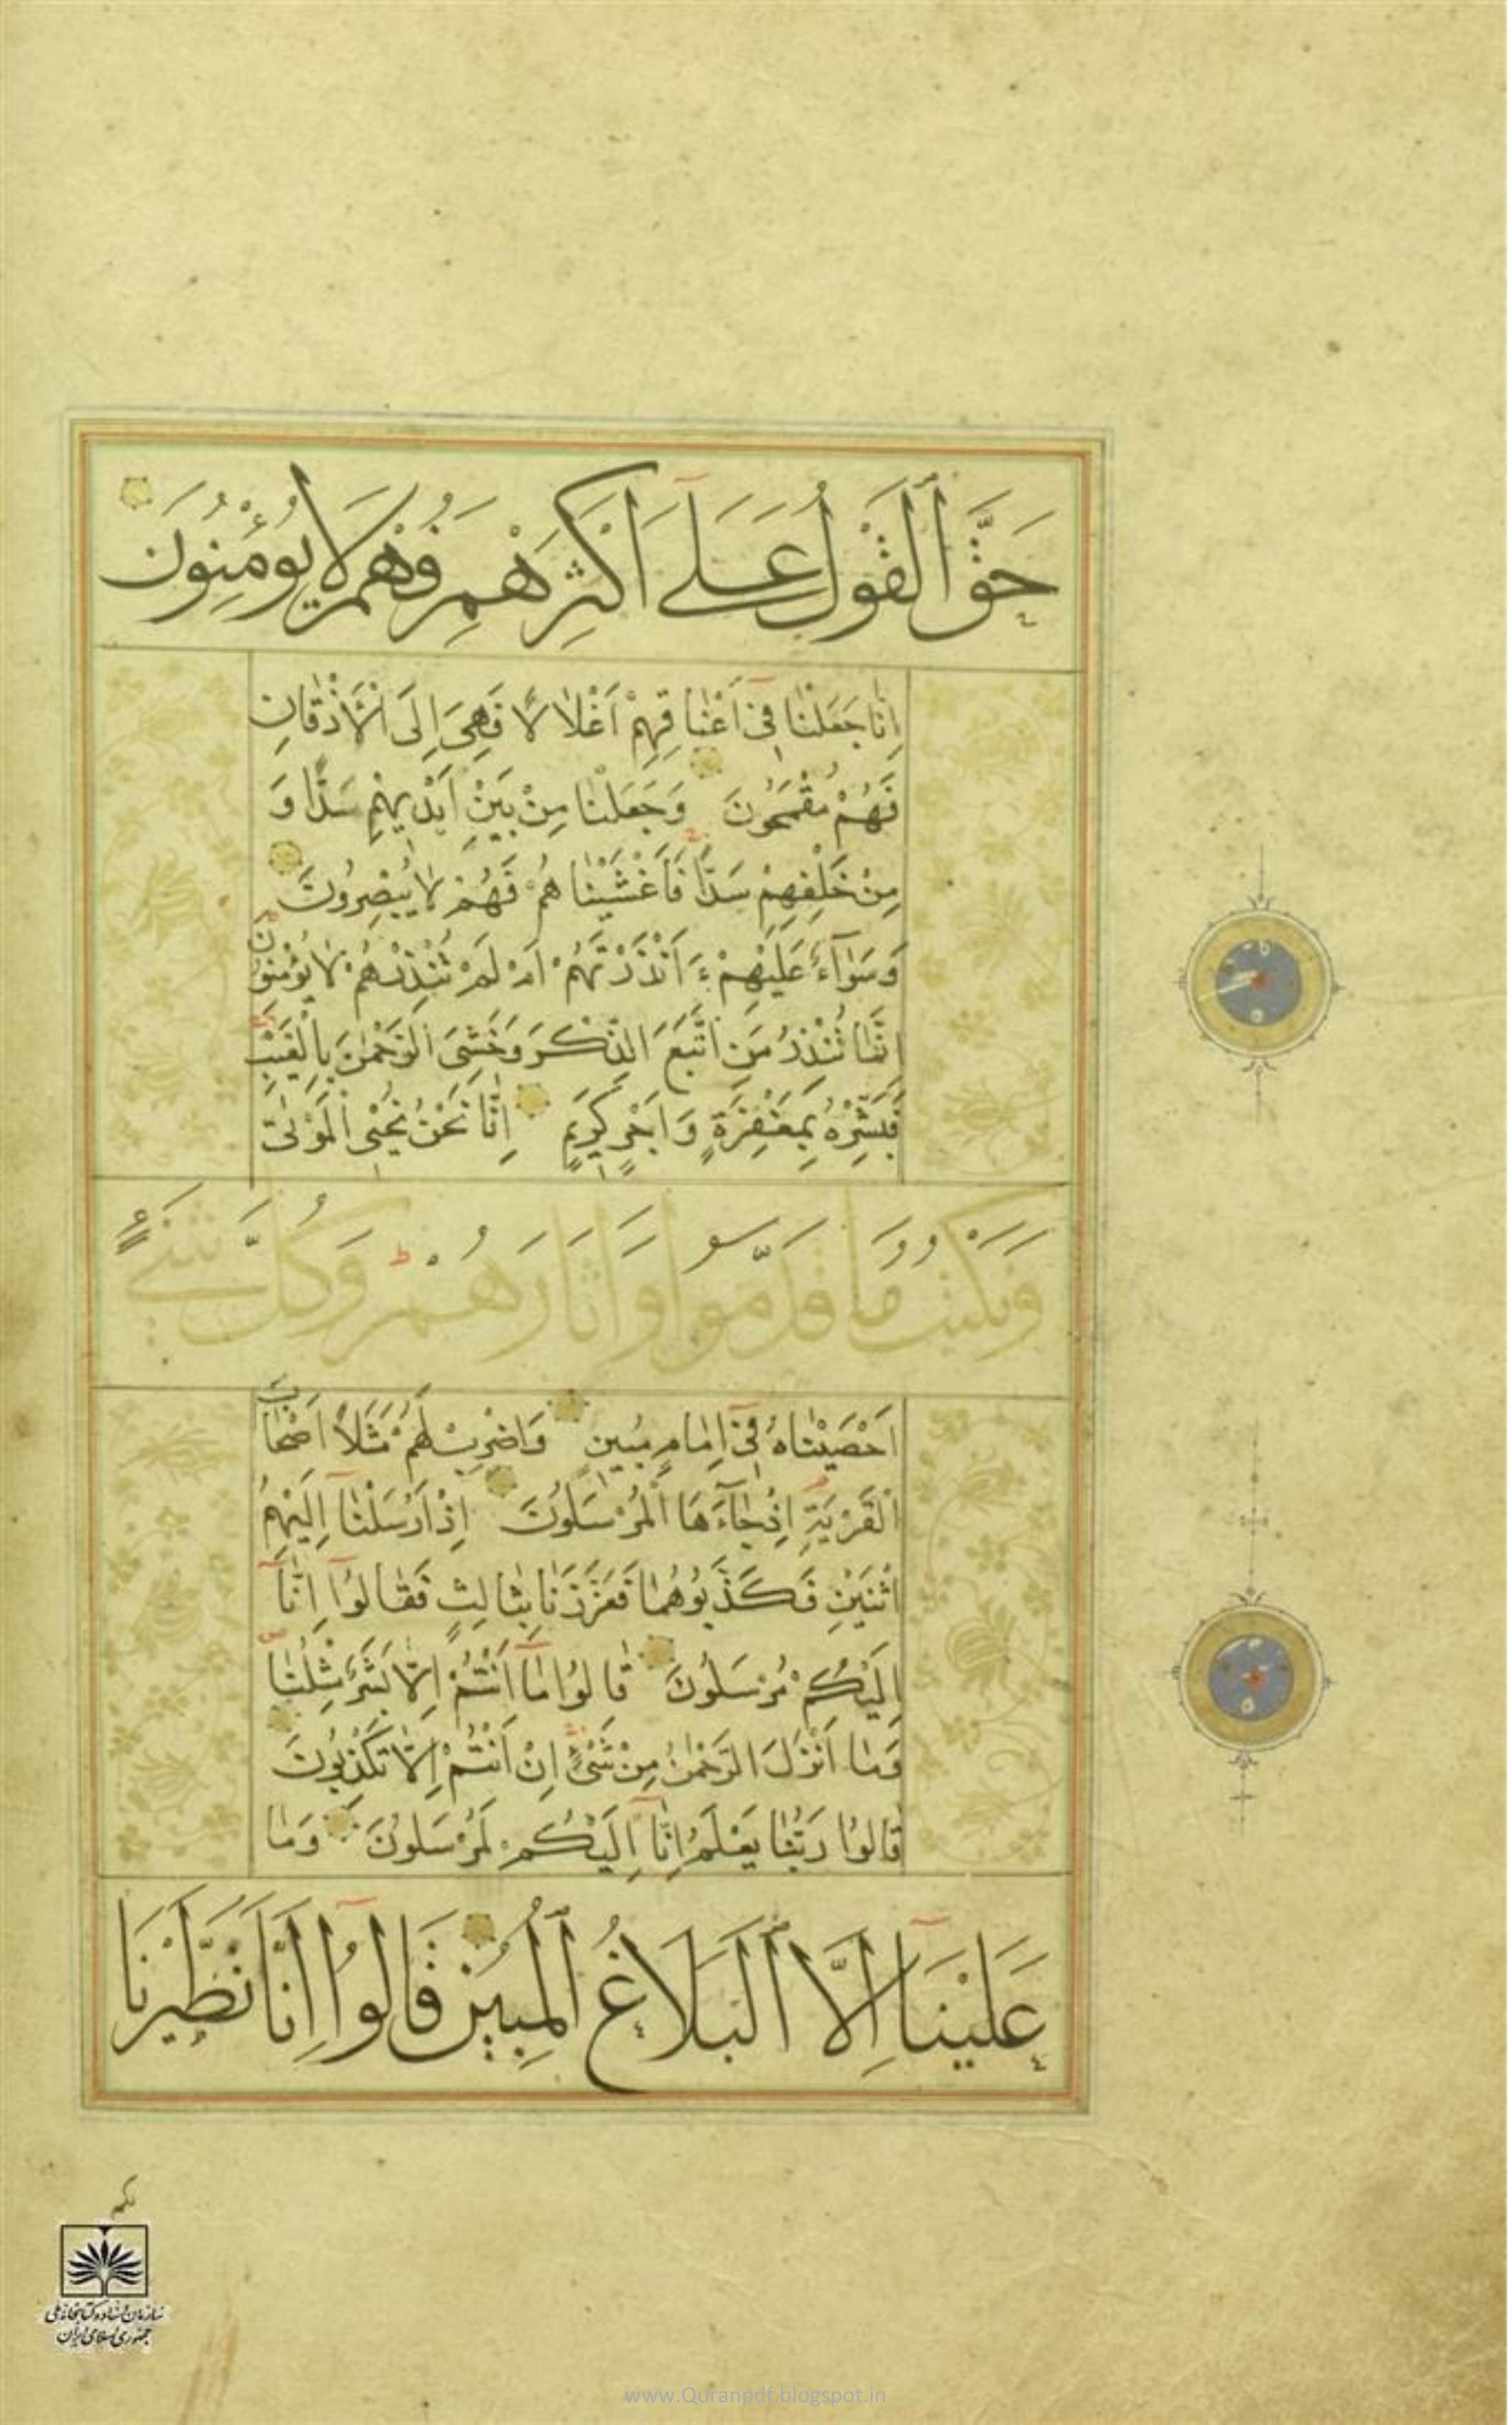 حَقَّ ٱلْقَوْلُ عَلَىٰٓ أَكْثَرِهِمْ فَهُمْ لَا يُؤْمِنُونَ
اِنَّا جَعَلْنٰا فِىٓ اَعْنٰاقِهِمْ اَغْلٰالًا فَهِىَ اِلَى الْاَذْقٰانِ
فَهُمْ مُقْمَحُونَ وَجَعَلْنٰا مِنْ بَيْنِ اَيْدِيهِمْ سَدًّا وَ
مِنْ خَلْفِهِمْ سَدًّا فَاَغْشَيْنٰاهُمْ فَهُمْ لٰا يُبْصِرُونَ
وَسَوٰآءٌ عَلَيْهِمْ ءَاَنْذَرْتَهُمْ اَمْ لَمْ تُنْذِرْهُمْ لٰا يُؤْمِنُونَ
اِنَّمٰا تُنْذِرُ مَنِ اتَّبَعَ الذِّكْرَ وَخَشِىَ الرَّحْمٰنَ بِالْغَيْبِ
فَبَشِّرْهُ بِمَغْفِرَةٍ وَاَجْرٍ كَرِيمٍ اِنّٰا نَحْنُ نُحْيِى الْمَوْتٰى
وَنَكْتُبُ مَا قَدَّمُوا وَآثَارَهُمْ وَكُلَّ شَىْءٍ
اَحْصَيْنٰاهُ فِىٓ اِمٰامٍ مُبِينٍ وَاضْرِبْ لَهُمْ مَثَلًا اَصْحٰابَ
الْقَرْيَةِ اِذْ جٰآءَهَا الْمُرْسَلُونَ اِذْ اَرْسَلْنٰآ اِلَيْهِمُ
اثْنَيْنِ فَكَذَّبُوهُمٰا فَعَزَّزْنٰا بِثٰالِثٍ فَقٰالُوٓا اِنّٰآ
اِلَيْكُمْ مُرْسَلُونَ قٰالُوا مٰآ اَنْتُمْ اِلّٰا بَشَرٌ مِثْلُنٰا
وَمٰا اَنْزَلَ الرَّحْمٰنُ مِنْ شَىْءٍ اِنْ اَنْتُمْ اِلّٰا تَكْذِبُونَ
قٰالُوا رَبُّنٰا يَعْلَمُ اِنّٰآ اِلَيْكُمْ لَمُرْسَلُونَ وَمٰا
عَلَيْنَآ اِلَّا ٱلْبَلَاغُ ٱلْمُبِينُ قَالُوٓا اِنَّا تَطَيَّرْنَا
بكم
سازمان اسناد و کتابخانه ملی
جمهوری اسلامی ایران
www.Quranpdf.blogspot.in